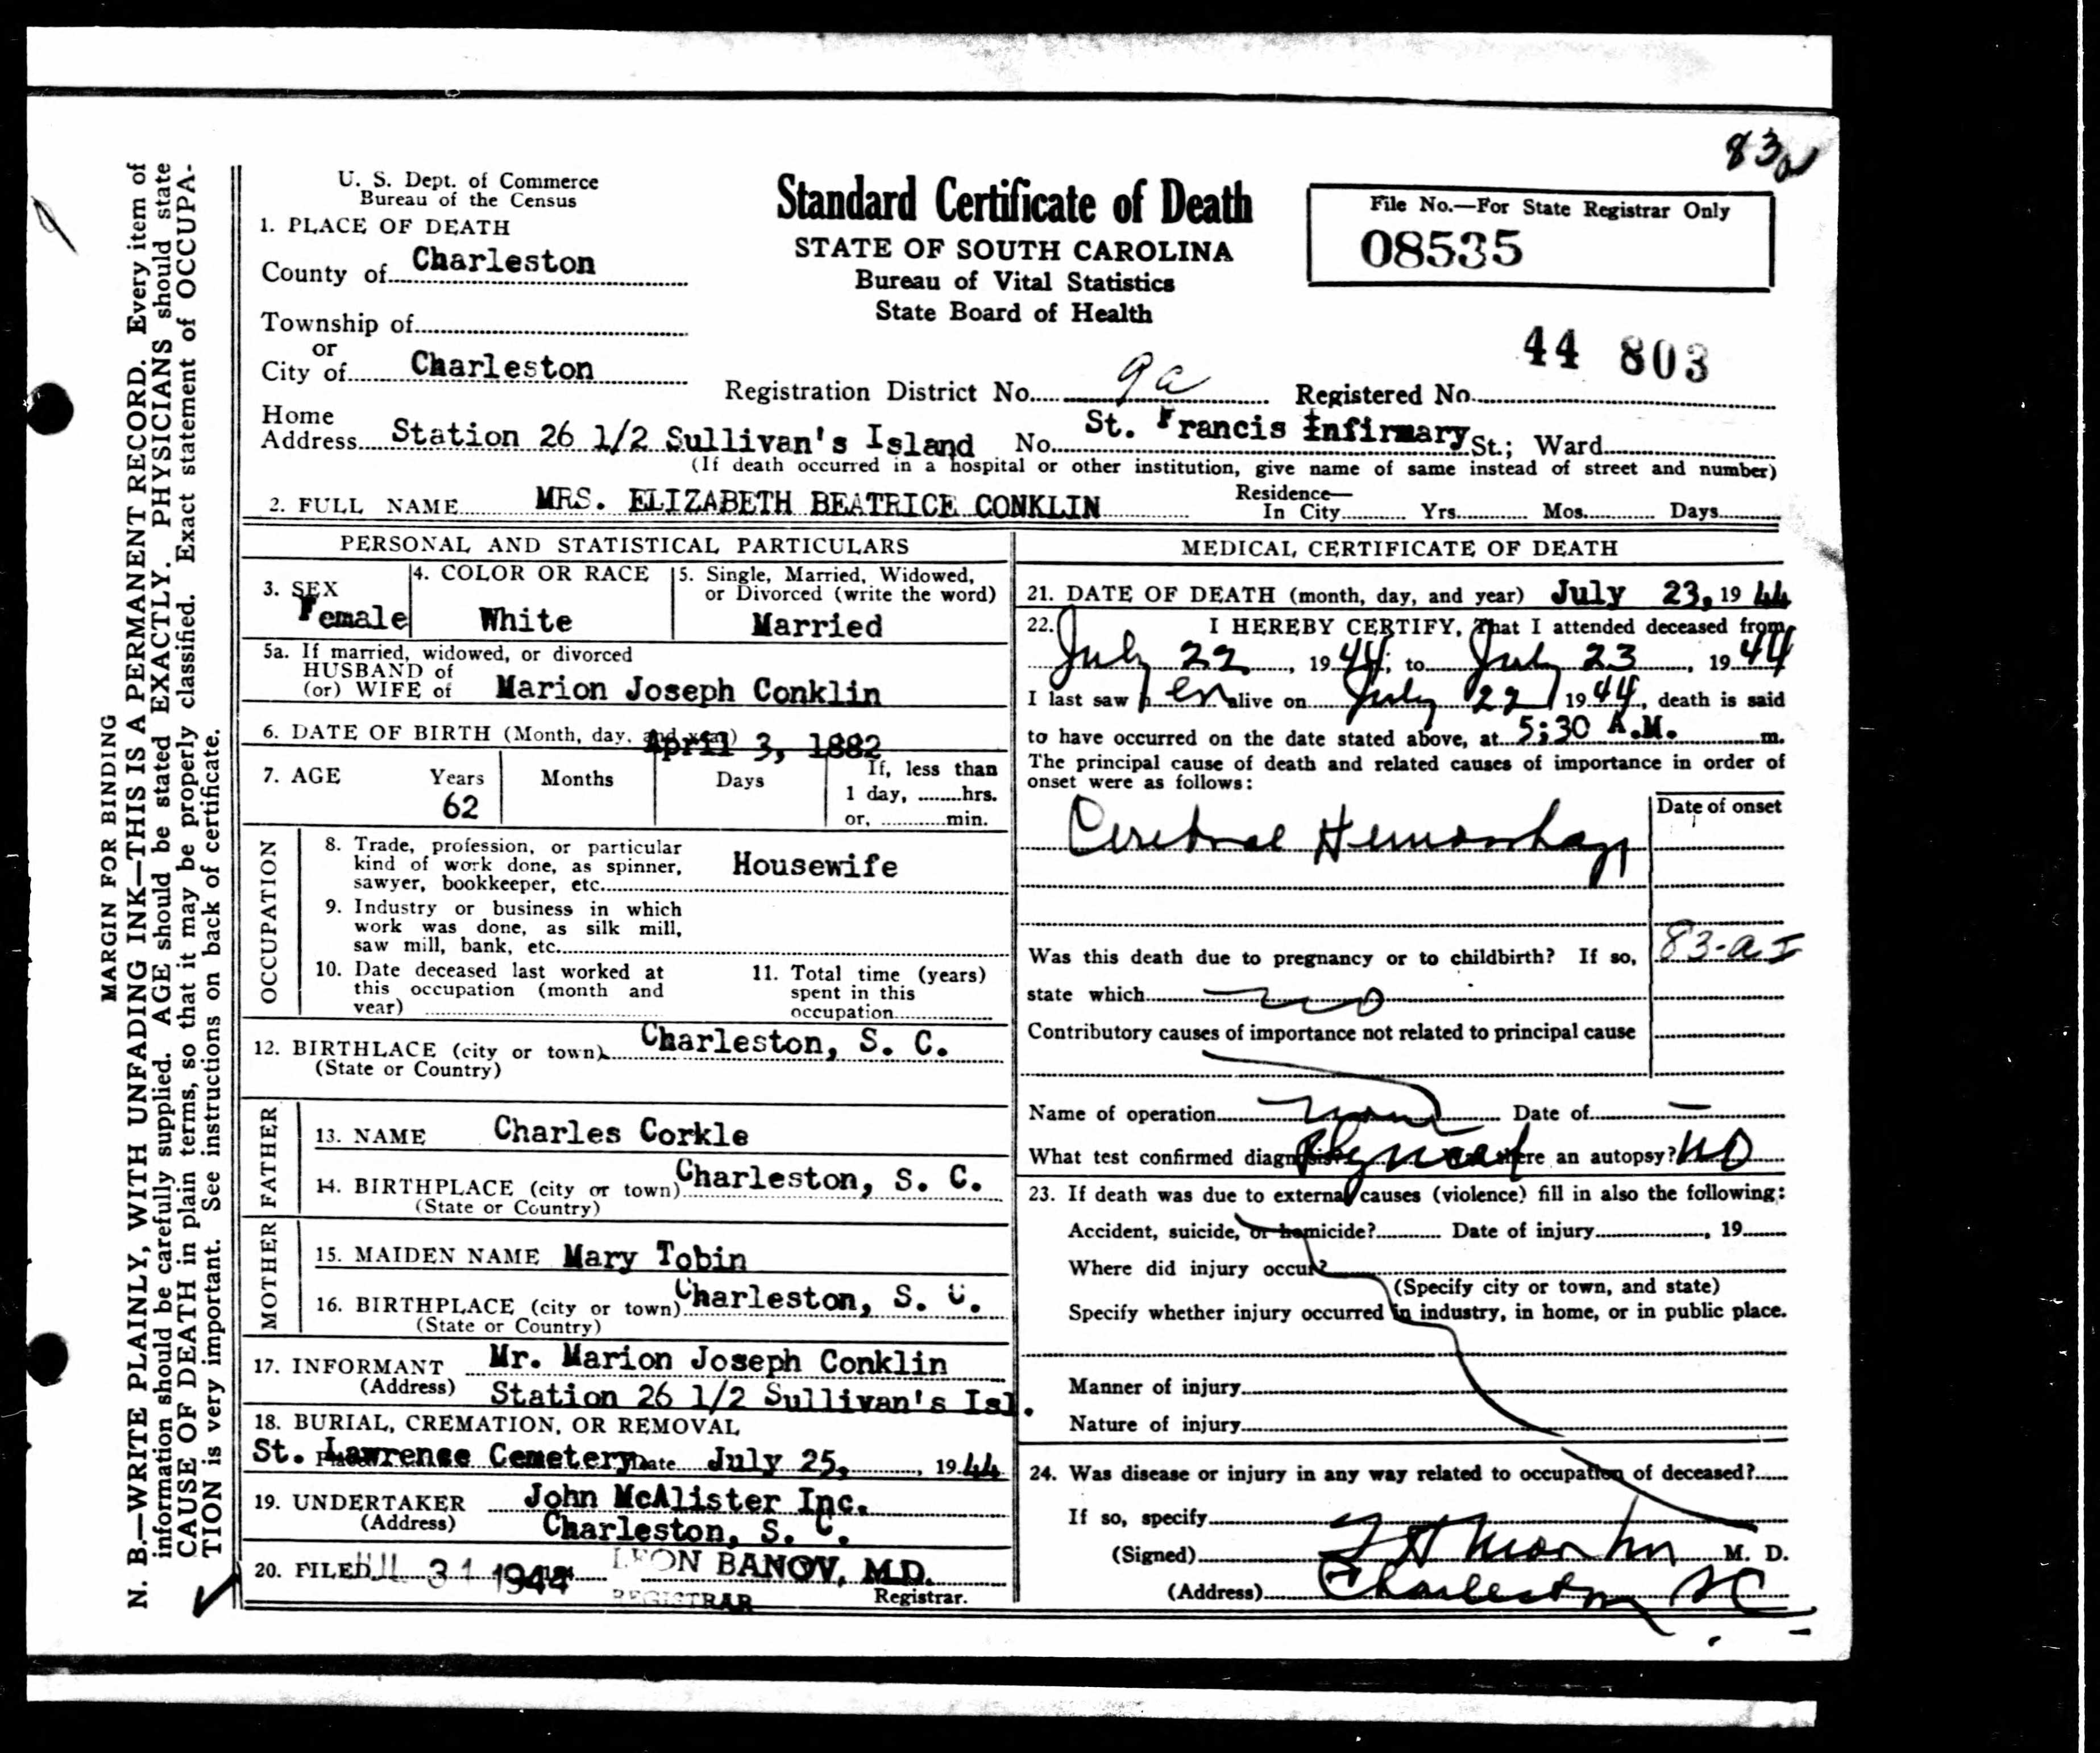 83a
U. S. Dept. of Commerce
Bureau of the Census
Standard Certificate of Death
STATE OF SOUTH CAROLINA
Bureau of Vital Statistics
State Board of Health
File No.—For State Registrar Only
08535
1. PLACE OF DEATH
County of Charleston
Township of
or
City of Charleston
Registration District No. 9a Registered No. 44 803
Home
Address Station 26 1/2 Sullivan's Island No. St. Francis Infirmary St.; Ward
(If death occurred in a hospital or other institution, give name of same instead of street and number)
2. FULL NAME MRS. ELIZABETH BEATRICE CONKLIN
Residence—
In City Yrs. Mos. Days
PERSONAL AND STATISTICAL PARTICULARS
3. SEX
Female
4. COLOR OR RACE
White
5. Single, Married, Widowed,
or Divorced (write the word)
Married
5a. If married, widowed, or divorced
HUSBAND of
(or) WIFE of Marion Joseph Conklin
6. DATE OF BIRTH (Month, day, and year) April 3, 1882
7. AGE Years Months Days If, less than
62
1 day, hrs.
or, min.
OCCUPATION
8. Trade, profession, or particular
kind of work done, as spinner,
sawyer, bookkeeper, etc. Housewife
9. Industry or business in which
work was done, as silk mill,
saw mill, bank, etc.
10. Date deceased last worked at
this occupation (month and
year)
11. Total time (years)
spent in this
occupation
12. BIRTHLACE (city or town) Charleston, S. C.
(State or Country)
FATHER
13. NAME Charles Corkle
14. BIRTHPLACE (city or town) Charleston, S. C.
(State or Country)
MOTHER
15. MAIDEN NAME Mary Tobin
16. BIRTHPLACE (city or town) Charleston, S. C.
(State or Country)
17. INFORMANT Mr. Marion Joseph Conklin
(Address) Station 26 1/2 Sullivan's Isl.
18. BURIAL, CREMATION, OR REMOVAL
Place St. Lawrence Cemetery Date July 25, 1944
19. UNDERTAKER John McAlister Inc.
(Address) Charleston, S. C.
20. FILED JUL 31 1944 LEON BANOV, M.D.
REGISTRAR Registrar.
MEDICAL CERTIFICATE OF DEATH
21. DATE OF DEATH (month, day, and year) July 23, 1944
22. I HEREBY CERTIFY, That I attended deceased from
July 22, 1944, to July 23, 1944
I last saw her alive on July 22 1944, death is said
to have occurred on the date stated above, at 5:30 A.M. m.
The principal cause of death and related causes of importance in order of
onset were as follows:
Date of onset
Cerebral Hemorrhage
Was this death due to pregnancy or to childbirth? If so, 83-a I
state which no
Contributory causes of importance not related to principal cause
Name of operation none Date of —
What test confirmed diagnosis? Physical Was there an autopsy? no
23. If death was due to external causes (violence) fill in also the following:
Accident, suicide, or homicide? Date of injury , 19
Where did injury occur?
(Specify city or town, and state)
Specify whether injury occurred in industry, in home, or in public place.
Manner of injury
Nature of injury
24. Was disease or injury in any way related to occupation of deceased?
If so, specify
(Signed) M. D.
(Address) Charleston SC
MARGIN FOR BINDING
N. B.—WRITE PLAINLY, WITH UNFADING INK—THIS IS A PERMANENT RECORD. Every item of
information should be carefully supplied. AGE should be stated EXACTLY. PHYSICIANS should state
CAUSE OF DEATH in plain terms, so that it may be properly classified. Exact statement of OCCUPA-
TION is very important. See instructions on back of certificate.